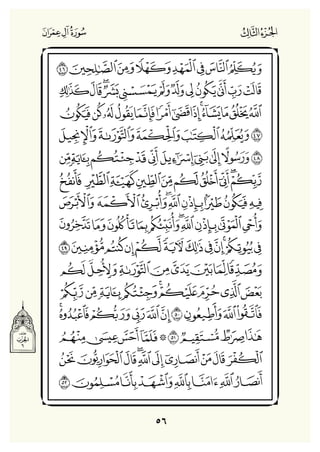 الجُزْءُ الثَّالِثُ سُورَةُ آلِ عِمْرَانَ
وَيُكَلِّمُ ٱلنَّاسَ فِي ٱلْمَهْدِ وَكَهْلًا وَمِنَ ٱلصَّٰلِحِينَ ٤٦
قَالَتْ رَبِّ أَنَّىٰ يَكُونُ لِي وَلَدٌ وَلَمْ يَمْسَسْنِي بَشَرٌ ۖ قَالَ كَذَٰلِكِ
ٱللَّهُ يَخْلُقُ مَا يَشَآءُ ۚ إِذَا قَضَىٰٓ أَمْرًا فَإِنَّمَا يَقُولُ لَهُۥ كُن فَيَكُونُ
٤٧ وَيُعَلِّمُهُ ٱلْكِتَٰبَ وَٱلْحِكْمَةَ وَٱلتَّوْرَىٰةَ وَٱلْإِنجِيلَ
٤٨ وَرَسُولًا إِلَىٰ بَنِيٓ إِسْرَٰٓءِيلَ أَنِّي قَدْ جِئْتُكُم بِـَٔايَةٍ مِّن
رَّبِّكُمْ ۖ أَنِّيٓ أَخْلُقُ لَكُم مِّنَ ٱلطِّينِ كَهَيْـَٔةِ ٱلطَّيْرِ فَأَنفُخُ
فِيهِ فَيَكُونُ طَيْرًۢا بِإِذْنِ ٱللَّهِ ۖ وَأُبْرِئُ ٱلْأَكْمَهَ وَٱلْأَبْرَصَ
وَأُحْيِ ٱلْمَوْتَىٰ بِإِذْنِ ٱللَّهِ ۖ وَأُنَبِّئُكُم بِمَا تَأْكُلُونَ وَمَا تَدَّخِرُونَ
فِي بُيُوتِكُمْ ۚ إِنَّ فِي ذَٰلِكَ لَـَٔايَةً لَّكُمْ إِن كُنتُم مُّؤْمِنِينَ ٤٩
وَمُصَدِّقًا لِّمَا بَيْنَ يَدَيَّ مِنَ ٱلتَّوْرَىٰةِ وَلِأُحِلَّ لَكُم
بَعْضَ ٱلَّذِي حُرِّمَ عَلَيْكُمْ ۚ وَجِئْتُكُم بِـَٔايَةٍ مِّن رَّبِّكُمْ
فَٱتَّقُوا۟ ٱللَّهَ وَأَطِيعُونِ ٥٠ إِنَّ ٱللَّهَ رَبِّي وَرَبُّكُمْ فَٱعْبُدُوهُ ۗ
هَٰذَا صِرَٰطٌ مُّسْتَقِيمٌ ٥١ ۞ فَلَمَّآ أَحَسَّ عِيسَىٰ مِنْهُمُ
ٱلْكُفْرَ قَالَ مَنْ أَنصَارِيٓ إِلَى ٱللَّهِ ۖ قَالَ ٱلْحَوَارِيُّونَ نَحْنُ
أَنصَارُ ٱللَّهِ ءَامَنَّا بِٱللَّهِ وَٱشْهَدْ بِأَنَّا مُسْلِمُونَ ٥٢
٥٦